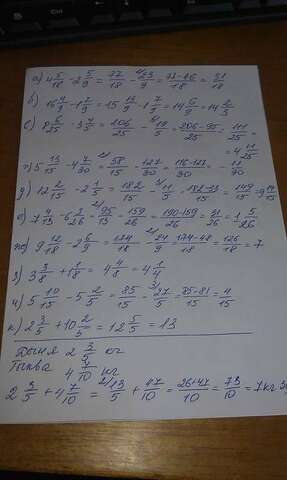 а) 4 5/18 - 2 5/9 = 77/18 - 23/9 = 77-46/18 = 31/18
б) 16 4/9 - 1 7/9 = 15 13/9 - 1 7/9 = 14 6/9 = 14 2/3
с) 8 6/25 - 3 4/5 = 206/25 - 19/5 = 206-95/25 = 111/25 =
= 4 11/25
г) 5 13/15 - 4 7/30 = 58/15 - 127/30 = 116-127/30 = - 11/30
д) 12 2/15 - 2 1/5 = 182/15 - 11/5 = 182-33/15 = 149/15 = 9 14/15
е) 7 4/13 - 6 3/26 = 95/13 - 159/26 = 190-159/26 = 31/26 = 1 5/26
ж) 9 12/18 - 2 6/9 = 174/18 - 24/9 = 174-48/18 = 126/18 = 7
з) 3 3/8 + 1 1/8 = 4 4/8 = 4 1/4
и) 5 10/15 - 5 2/5 = 85/15 - 27/5 = 85-81/15 = 4/15
к) 2 3/5 + 10 2/5 = 12 5/5 = 13
Дыня 2 3/5 кг
Тыква 4 7/10 кг
2 3/5 + 4 7/10 = 13/5 + 47/10 = 26+47/10 = 73/10 = 7кг